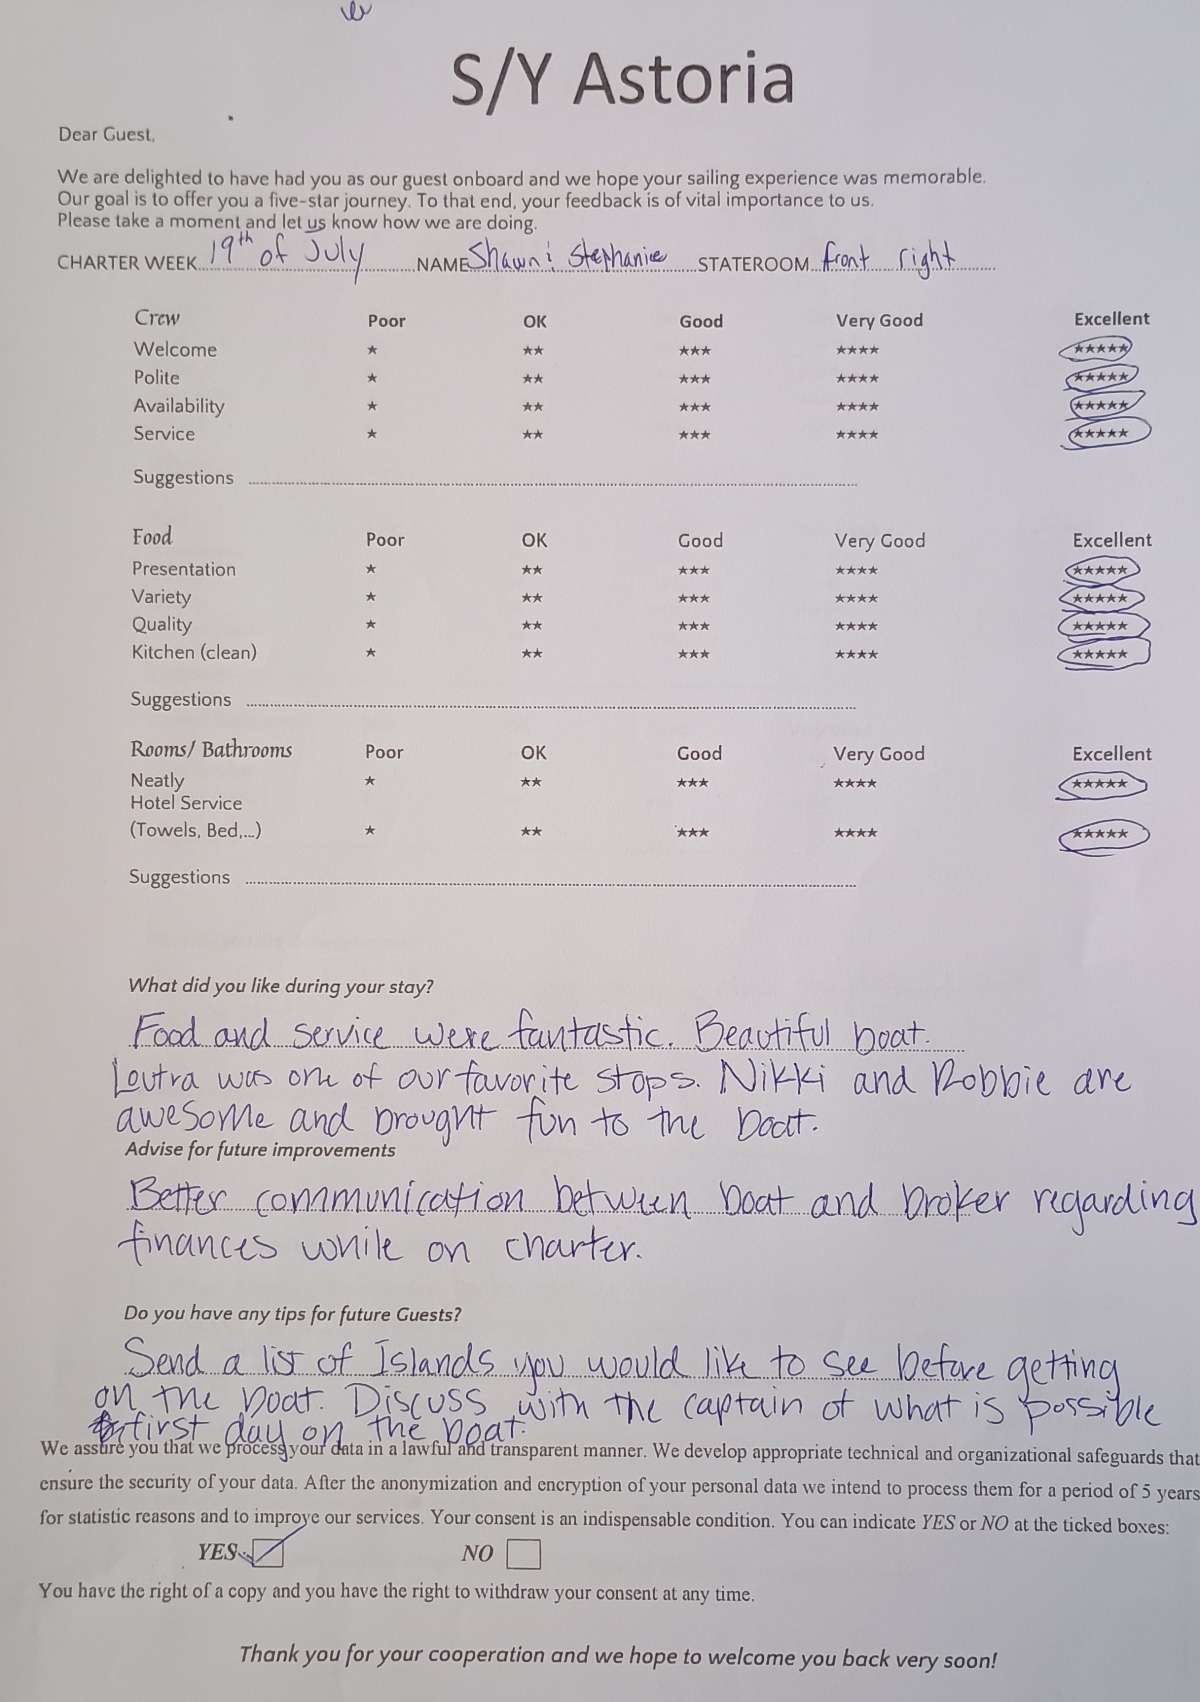 S/Y Astoria
Dear Guest,
We are delighted to have had you as our guest onboard and we hope your sailing experience was memorable.
Our goal is to offer you a five-star journey. To that end, your feedback is of vital importance to us.
Please take a moment and let us know how we are doing.
CHARTER WEEK 19th of July NAME Shawn & Stephanie STATEROOM front right
Crew Poor OK Good Very Good Excellent
Welcome ★ ★★ ★★★ ★★★★ ★★★★★
Polite ★ ★★ ★★★ ★★★★ ★★★★★
Availability ★ ★★ ★★★ ★★★★ ★★★★★
Service ★ ★★ ★★★ ★★★★ ★★★★★
Suggestions
Food Poor OK Good Very Good Excellent
Presentation ★ ★★ ★★★ ★★★★ ★★★★★
Variety ★ ★★ ★★★ ★★★★ ★★★★★
Quality ★ ★★ ★★★ ★★★★ ★★★★★
Kitchen (clean) ★ ★★ ★★★ ★★★★ ★★★★★
Suggestions
Rooms/ Bathrooms Poor OK Good Very Good Excellent
Neatly ★ ★★ ★★★ ★★★★ ★★★★★
Hotel Service
(Towels, Bed,...) ★ ★★ ★★★ ★★★★ ★★★★★
Suggestions
What did you like during your stay?
Food and service were fantastic. Beautiful boat.
Loutra was one of our favorite stops. Nikki and Robbie are
awesome and brought fun to the boat.
Advise for future improvements
Better communication between boat and broker regarding
finances while on charter.
Do you have any tips for future Guests?
Send a list of Islands you would like to see before getting
on the boat. Discuss with the captain of what is possible
first day on the boat.
We assure you that we process your data in a lawful and transparent manner. We develop appropriate technical and organizational safeguards that
ensure the security of your data. After the anonymization and encryption of your personal data we intend to process them for a period of 5 years
for statistic reasons and to improve our services. Your consent is an indispensable condition. You can indicate YES or NO at the ticked boxes:
YES NO
You have the right of a copy and you have the right to withdraw your consent at any time.
Thank you for your cooperation and we hope to welcome you back very soon!